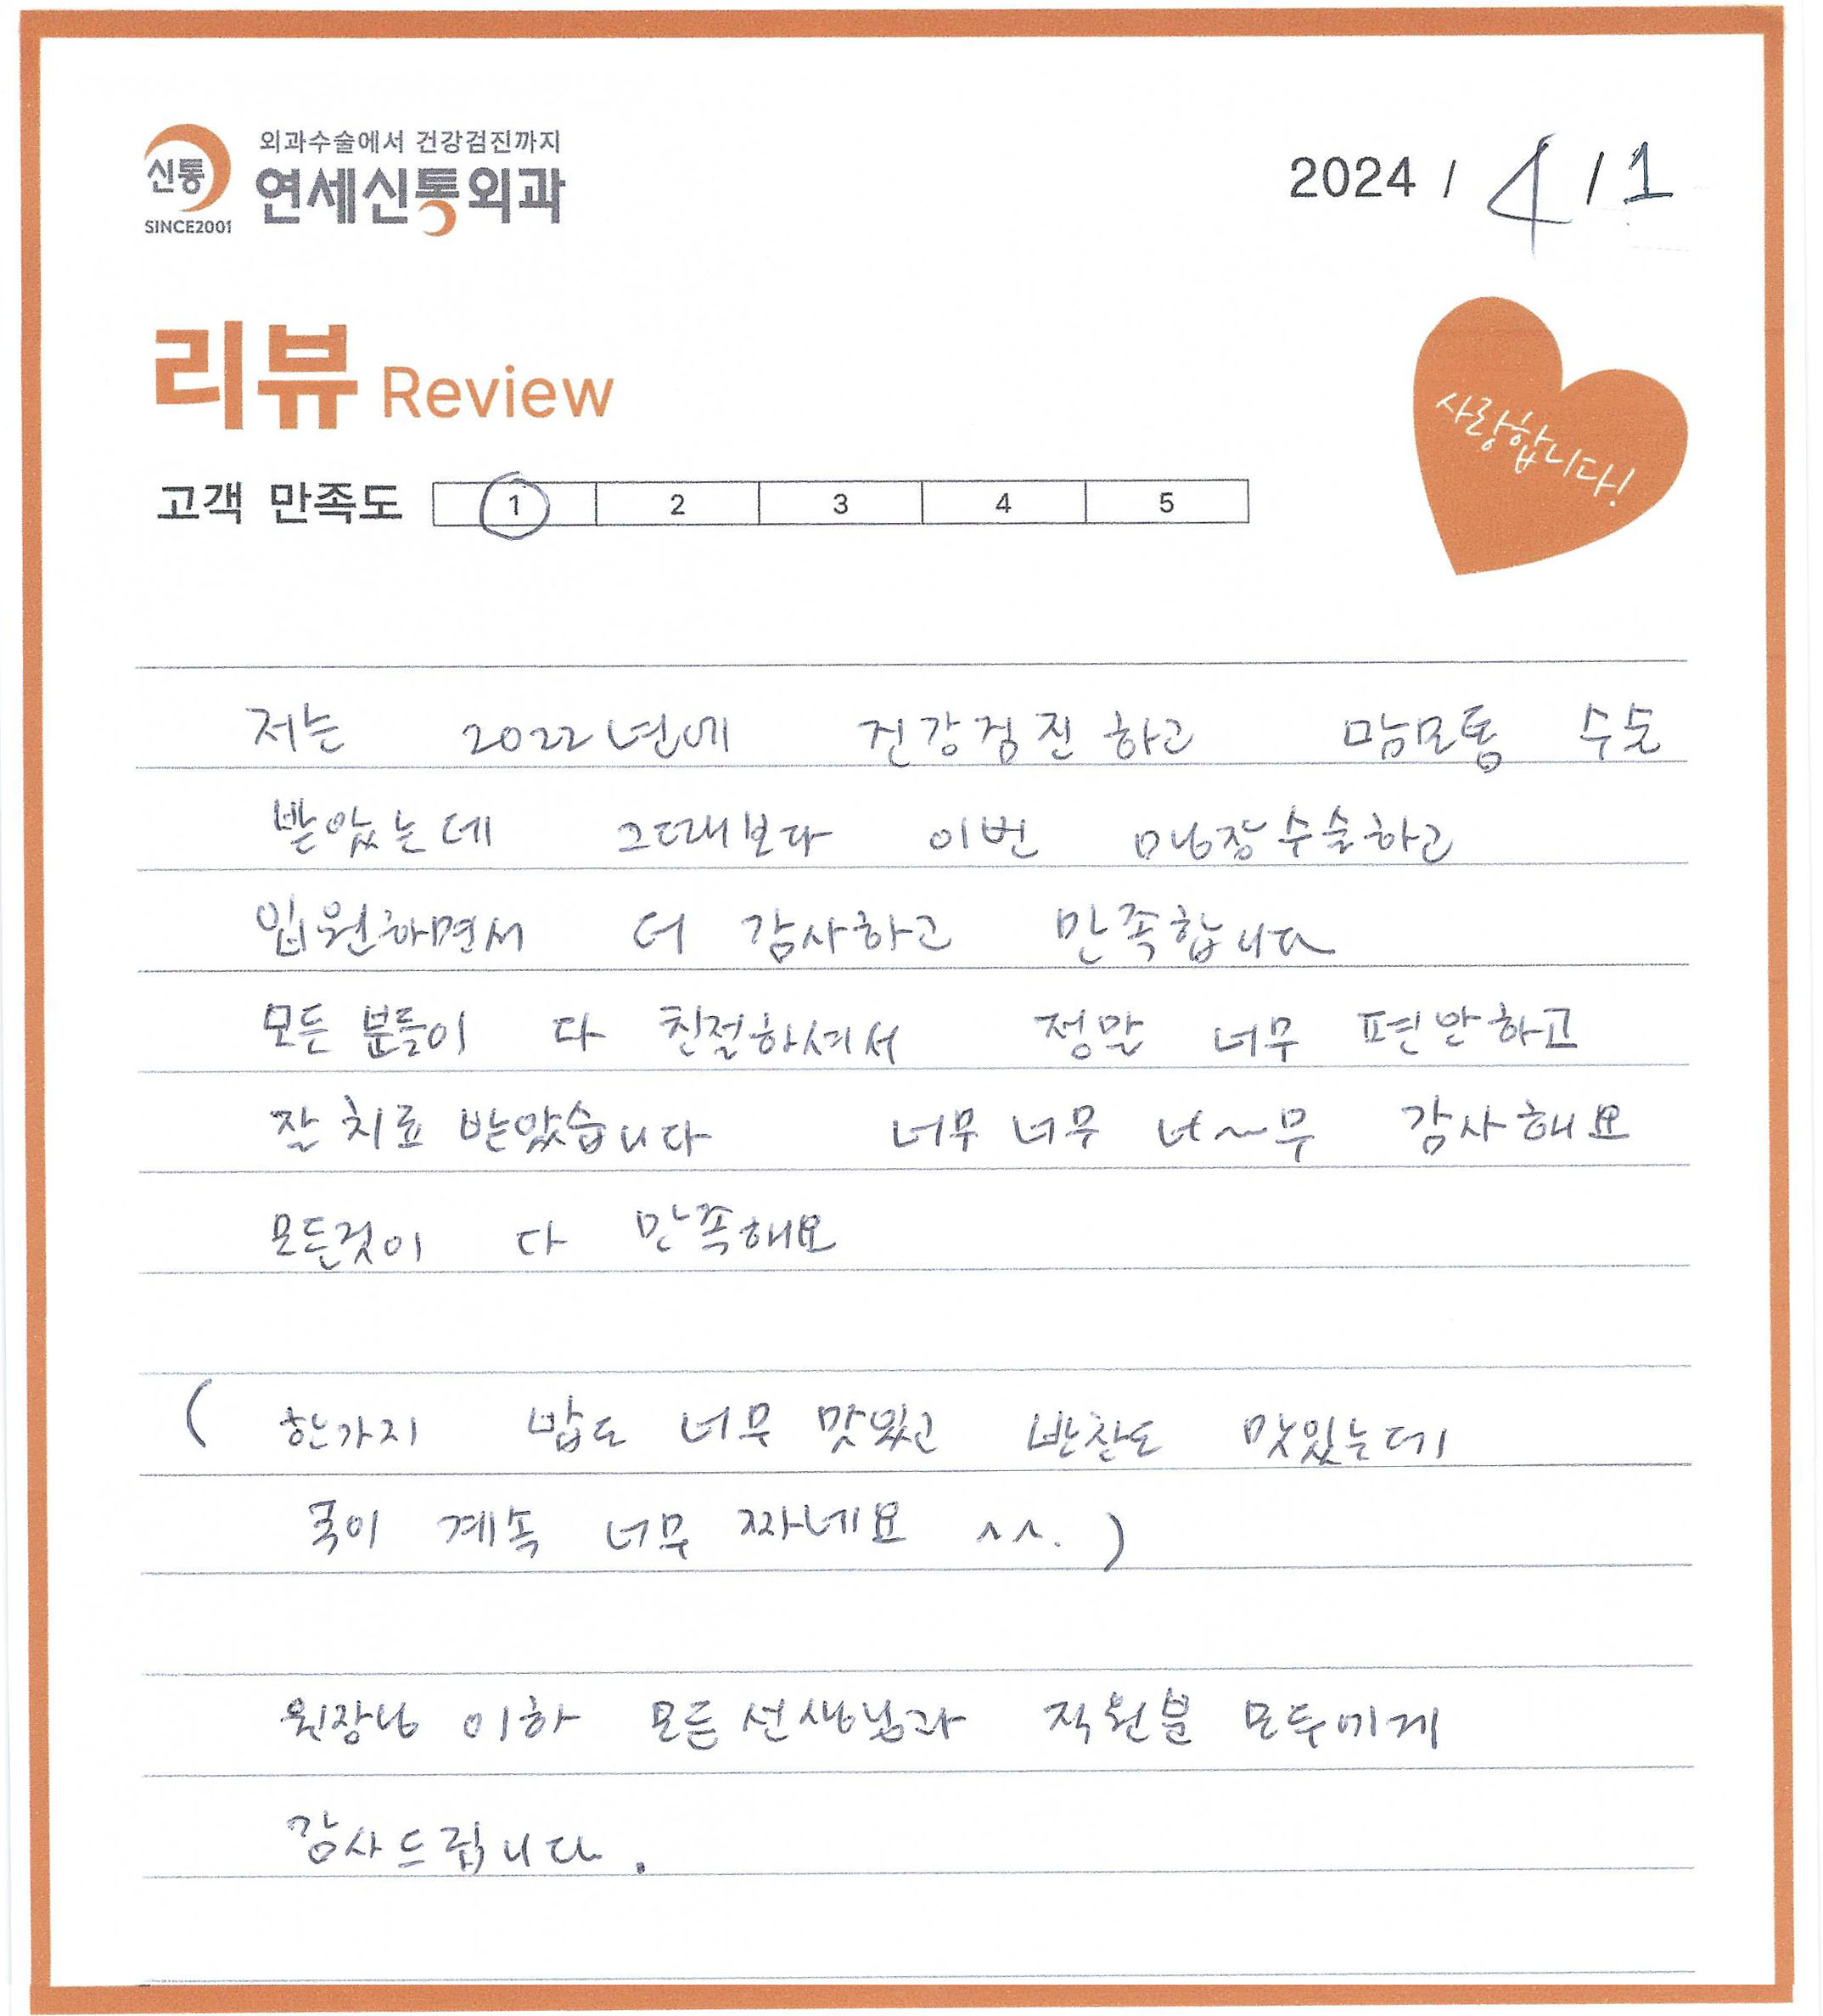 외과수술에서 건강검진까지
신통 연세신통외과
SINCE2001
2024 / 4 / 1
리뷰 Review
사랑합니다!
고객 만족도 1 2 3 4 5
저는 2022년에 건강검진하고 맘모톰 수술
받았는데 그때보다 이번 맹장수술하고
입원하면서 더 감사하고 만족합니다
모든 분들이 다 친절하셔서 정말 너무 편안하고
잘 치료 받았습니다 너무 너무 너~무 감사해요
모든것이 다 만족해요
( 한가지 밥도 너무 맛있고 반찬도 맛있는데
국이 계속 너무 짜네요 ^^. )
원장님 이하 모든 선생님과 직원분 모두에게
감사드립니다.